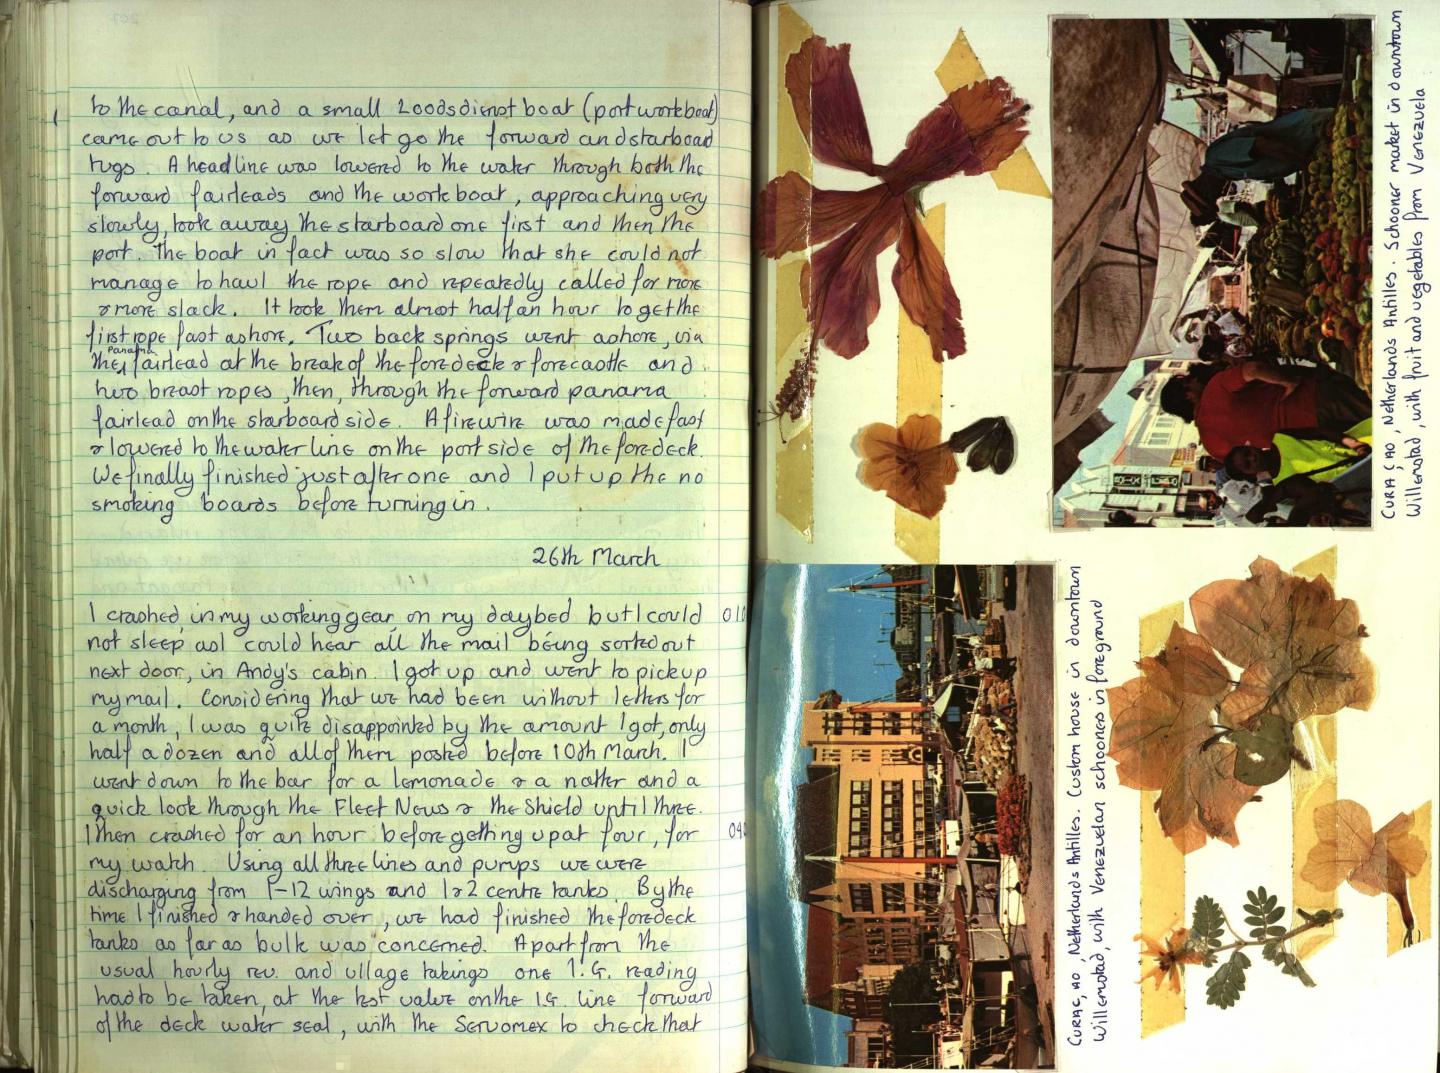 to the canal, and a small Loodsdienst boat (port workboat)
came out to us as we let go the forward and starboard
tugs. A headline was lowered to the water through both the
forward fairleads and the workboat, approaching very
slowly, took away the starboard one first and then the
port. The boat in fact was so slow that she could not
manage to haul the rope and repeatedly called for more
& more slack. It took them almost half an hour to get the
first rope fast ashore. Two back springs went ashore, via
the Panama fairlead at the break of the foredeck & forecastle and
two breast ropes, then, through the forward panama
fairlead on the starboard side. A firewire was made fast
& lowered to the water line on the port side of the foredeck.
We finally finished just after one and I put up the no
smoking boards before turning in.
26th March
I crashed, in my working gear, on my daybed but I could
not sleep as I could hear all the mail being sorted out
next door, in Andy's cabin. I got up and went to pick up
my mail. Considering that we had been without letters for
a month, I was quite disappointed by the amount I got, only
half a dozen and all of them posted before 10th March. I
went down to the bar for a lemonade & a natter and a
quick look through the Fleet News & the Shield until three.
I then crashed for an hour before getting up at four, for
my watch. Using all three lines and pumps we were
discharging from 1-12 wings and 1 & 2 centre tanks. By the
time I finished & handed over, we had finished the foredeck
tanks as far as bulk was concerned. Apart from the
usual hourly rev. and ullage takings one I.G. reading
had to be taken, at the test valve on the I.G. line forward
of the deck water seal, with the Servomex to check that
CURAÇAO, Netherlands Antilles. Schooner market in downtown
Willemstad, with fruit and vegetables from Venezuela
CURAÇAO, Netherlands Antilles. Custom house in downtown
Willemstad, with Venezuelan schooners in foreground